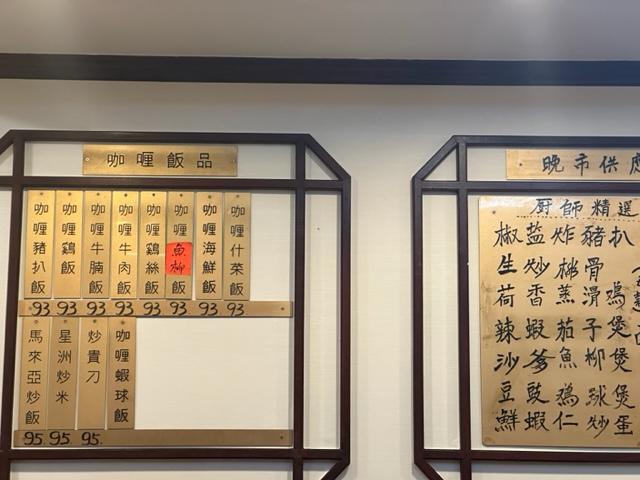 咖喱飯品
咖喱豬扒飯
咖喱鷄飯
咖喱牛腩飯
咖喱牛肉飯
咖喱鷄絲飯
咖喱魚柳飯
咖喱海鮮飯
咖喱什菜飯
93 93 93 93 93 93 93 93
馬來亞炒飯
星洲炒米
炒貴刁
咖喱蝦球飯
95. 95. 95.
晚市供應
厨師精選
椒盐炸豬扒
生炒排骨
荷香蒸滑鷄
辣蝦茄子煲
沙爹魚柳煲
豆豉鷄球煲
鮮蝦仁炒蛋